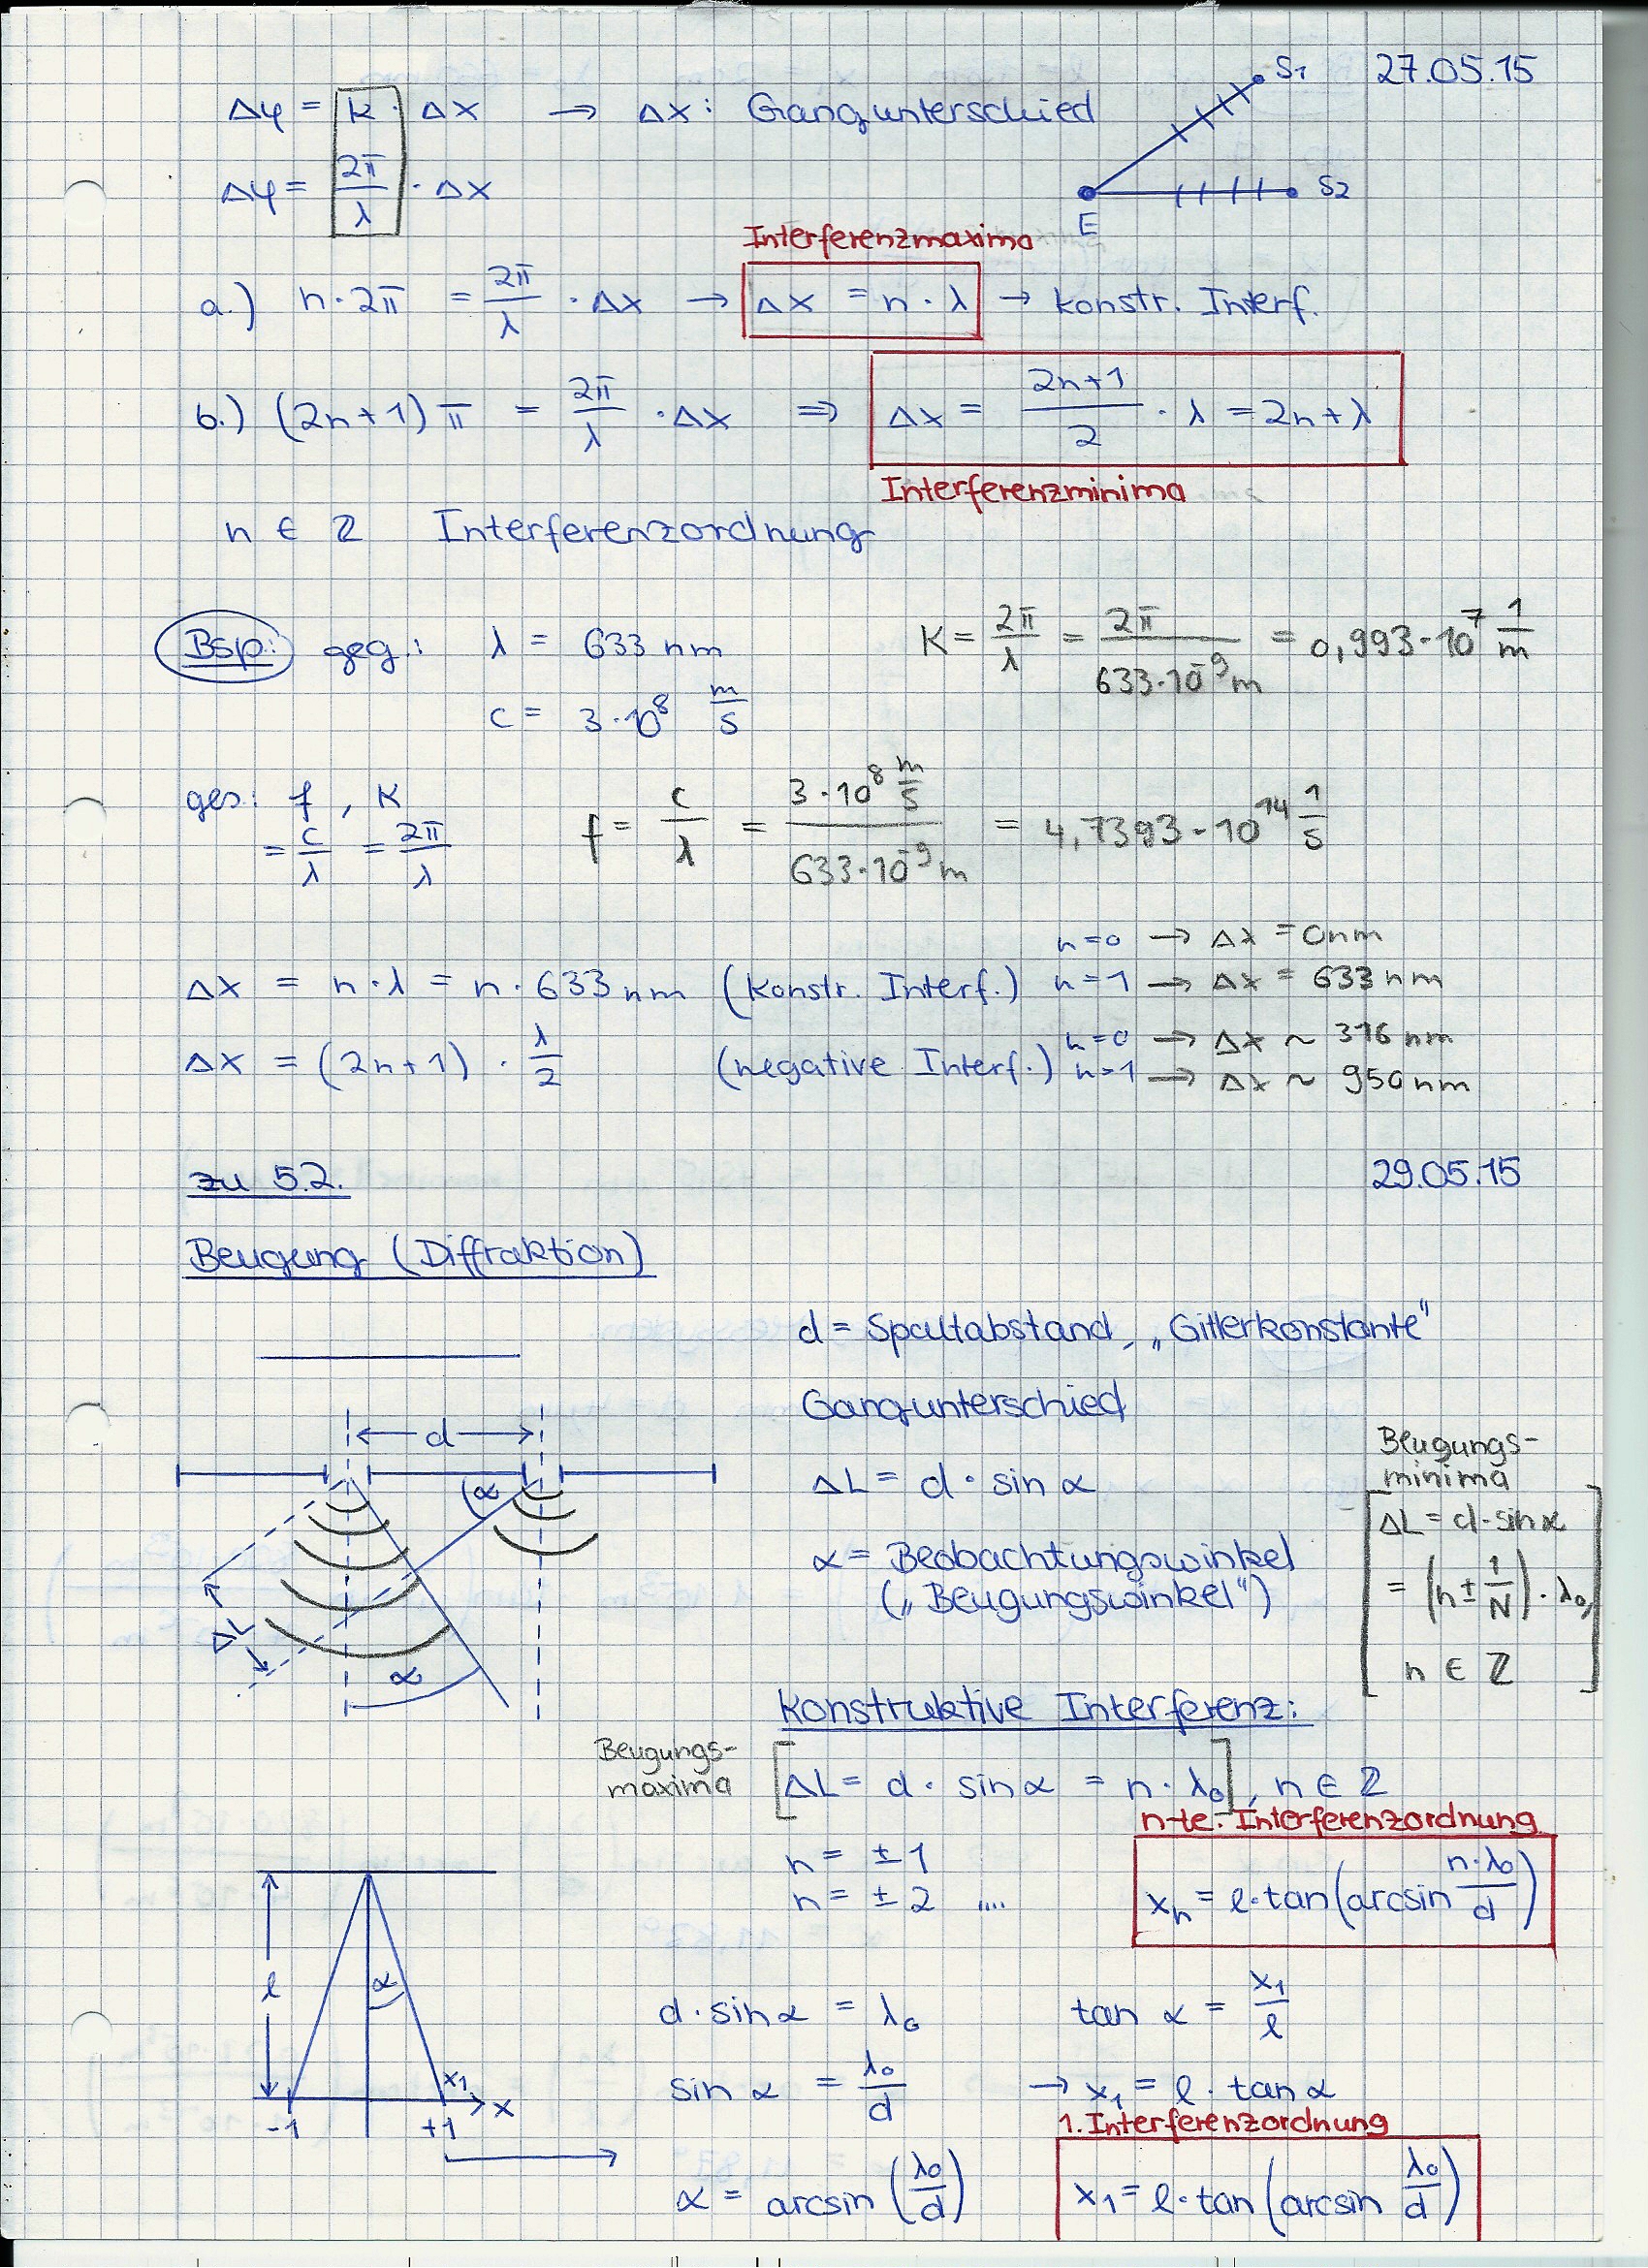 27.05.15
Δφ = k · Δx → Δx: Gangunterschied
S1
S2
E
Δφ = 2π/λ · Δx
Interferenzmaxima
a.) n·2π = 2π/λ · Δx → Δx = n · λ → konstr. Interf.
b.) (2n+1) π = 2π/λ · Δx ⇒ Δx = (2n+1)/2 · λ = 2n+λ
Interferenzminima
n ∈ ℤ Interferenzordnung
Bsp: geg.: λ = 633 nm
K = 2π/λ = 2π/(633·10⁻⁹ m) = 0,993·10⁷ 1/m
c = 3·10⁸ m/s
ges: f, K
= c/λ = 2π/λ
f = c/λ = (3·10⁸ m/s)/(633·10⁻⁹ m) = 4,7393·10¹⁴ 1/s
n=0 → Δx = 0nm
Δx = n·λ = n·633nm (konstr. Interf.) n=1 → Δx = 633 nm
n=0 → Δx ~ 316 nm
Δx = (2n+1) · λ/2 (negative Interf.) n=1 → Δx ~ 950nm
zu 5.2.
29.05.15
Beugung (Diffraktion)
d = Spaltabstand, „Gitterkonstante"
Gangunterschied
d
α
ΔL
α
ΔL = d · sin α
α = Beobachtungswinkel
(„Beugungswinkel")
Beugungs-
minima
ΔL = d·sin α
= (n ± 1/N) · λ₀,
n ∈ ℤ
Konstruktive Interferenz:
Beugungs-
maxima
[ΔL = d · sin α = n · λ₀], n ∈ ℤ
n = ±1
n = ±2 ....
n-te. Interferenzordnung
xₙ = l·tan(arcsin n·λ₀/d)
l
α
x₁
x
-1
+1
d·sin α = λ₀
tan α = x₁/l
sin α = λ₀/d
→ x₁ = l · tan α
α = arcsin (λ₀/d)
1. Interferenzordnung
x₁ = l·tan(arcsin λ₀/d)